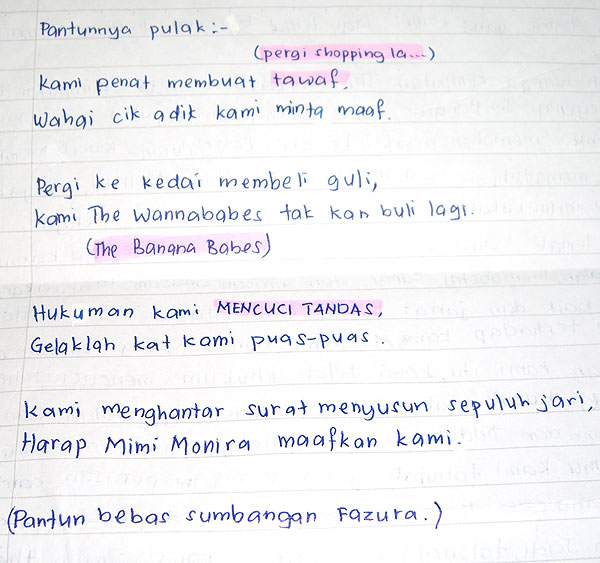 Pantunnya pulak:-
(pergi shopping la...)
Kami penat membuat tawaf,
Wahai cik adik kami minta maaf.
Pergi ke kedai membeli guli,
Kami The Wannababes tak kan buli lagi.
(The Banana Babes)
Hukuman kami MENCUCI TANDAS,
Gelaklah kat kami puas-puas.
Kami menghantar surat menyusun sepuluh jari,
Harap Mimi Monira maafkan kami.
(Pantun bebas sumbangan Fazura.)